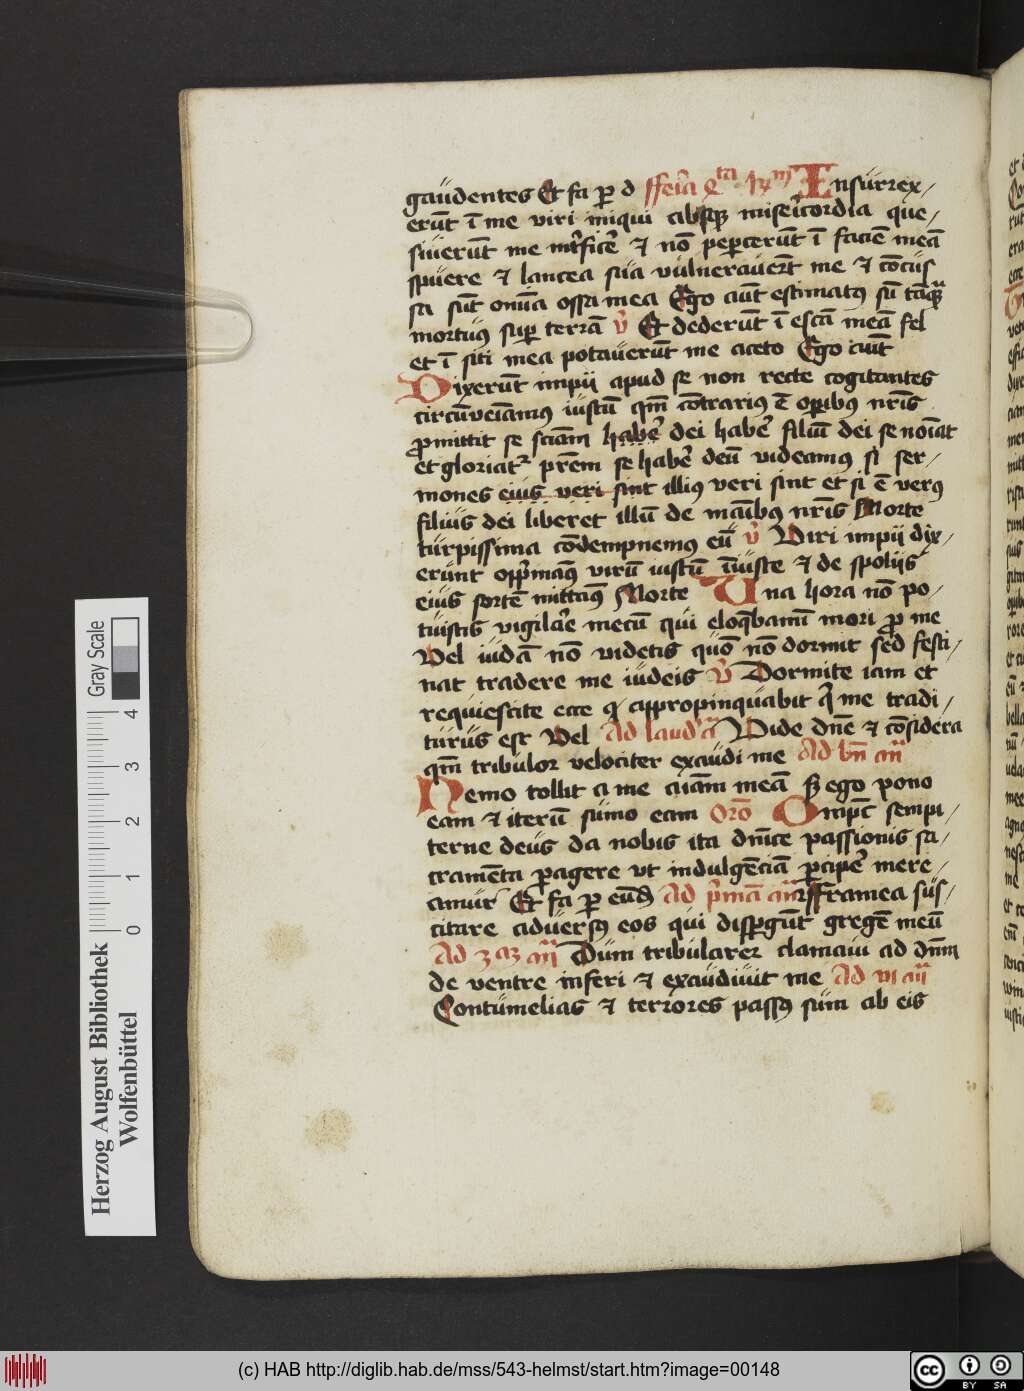 gaudentes Et fa ꝑ d ffeīa qta Rm Insurrex/
erūt ī me viri iniqui absqꝫ misericordia que/
siuerūt me īterficē et nō peꝑcerūt ī faciē meā
spuere et lancea sua vulnerauerūt me et cōcus
sa sūt omīa ossa mea Ego aūt estimatꝰ sū tāqᷓ
mortuus suꝑ terrā v̄ Et dederūt ī escā meā fel
et ī siti mea potauerūt me aceto Ego aūt
Dixerūt impii apud se non recte cogitantes
circūueīamꝰ iustū qm̄ cōtrarius ē oꝑibꝰ nrīs
ꝓmittit se sciam̄ habē dei habē filiū dei se noīat
et gloriatʳ prēm se habē deū videamꝰ si ser/
mones eius veri sint illiꝰ veri sint et si ē verꝰ
filius dei liberet illū de manibꝰ nrīs Morte
turpissima cōdempnemꝰ eū v̄ Viri impii dix/
erunt opp̄mamꝰ virū iustū īiuste et de spoliis
eius sortē mittamꝰ Morte Una hora nō po/
tuistis vigilāe mecū qui eloqbamī mori ꝓ me
Vel iudā nō videtis quō nō dormit sed festi/
nat tradere me iudeis v̄ Dormite iam et
requiescite ecce q appropinquabit q̄ me tradi/
turus est Vel Ad laud' a Vide dnē et cōsidera
qm̄ tribulor velociter exaudi me Ad bn̄ an̄
Nemo tollit a me aīam meā sꝫ ego pono
eam et iterū sumo eam Orō Omīpc̄ sempi/
terne deus da nobis ita dnīce passionis sa/
cramēta ꝑagere vt indulgēciā ꝑcipē mere/
amur Et fa ꝑ eūd Ad p̄mā an̄ Framea sus/
citare aduersꝰ eos qui disꝑgūt gregē meū
Ad 3 az an̄ Dum tribularer clamaui ad dnm
de ventre inferi et exaudiuit me Ad vi an̄
Contumelias et terrores passꝰ sum ab eis
Herzog August Bibliothek
Wolfenbüttel
Gray Scale
0 1 2 3 4
(c) HAB http://diglib.hab.de/mss/543-helmst/start.htm?image=00148
cc BY SA